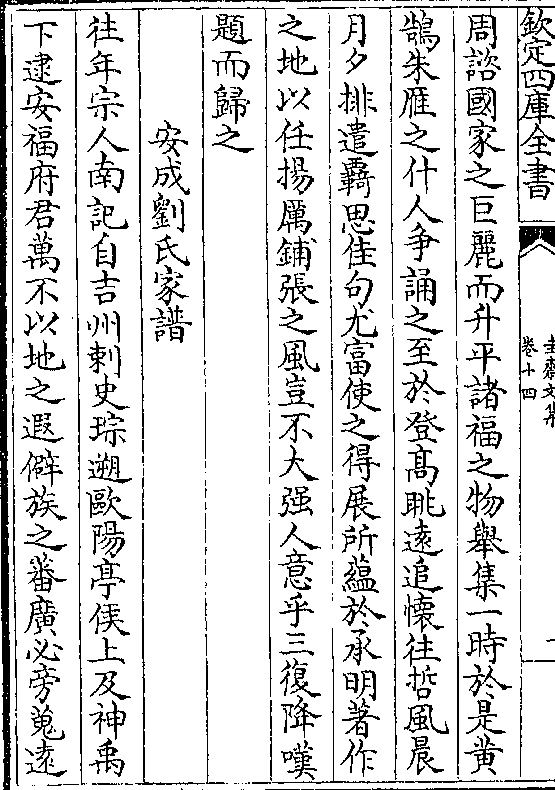 欽定四庫全書
圭齋文集
卷十四
周諮國家之巨麗而升平諸福之物舉集一時於是黄
鵠朱雁之什人爭誦之至於登髙眺遠追懷往哲風晨
月夕排遣羇思佳句尤富使之得展所蘊於承明著作
之地以任揚厲鋪張之風豈不大强人意乎三復降嘆
題而歸之
安成劉氏家譜
往年宗人南記自吉州刺史琮遡歐陽亭侯上及神禹
下逮安福府君萬不以地之遐僻族之蕃廣必旁蒐遠